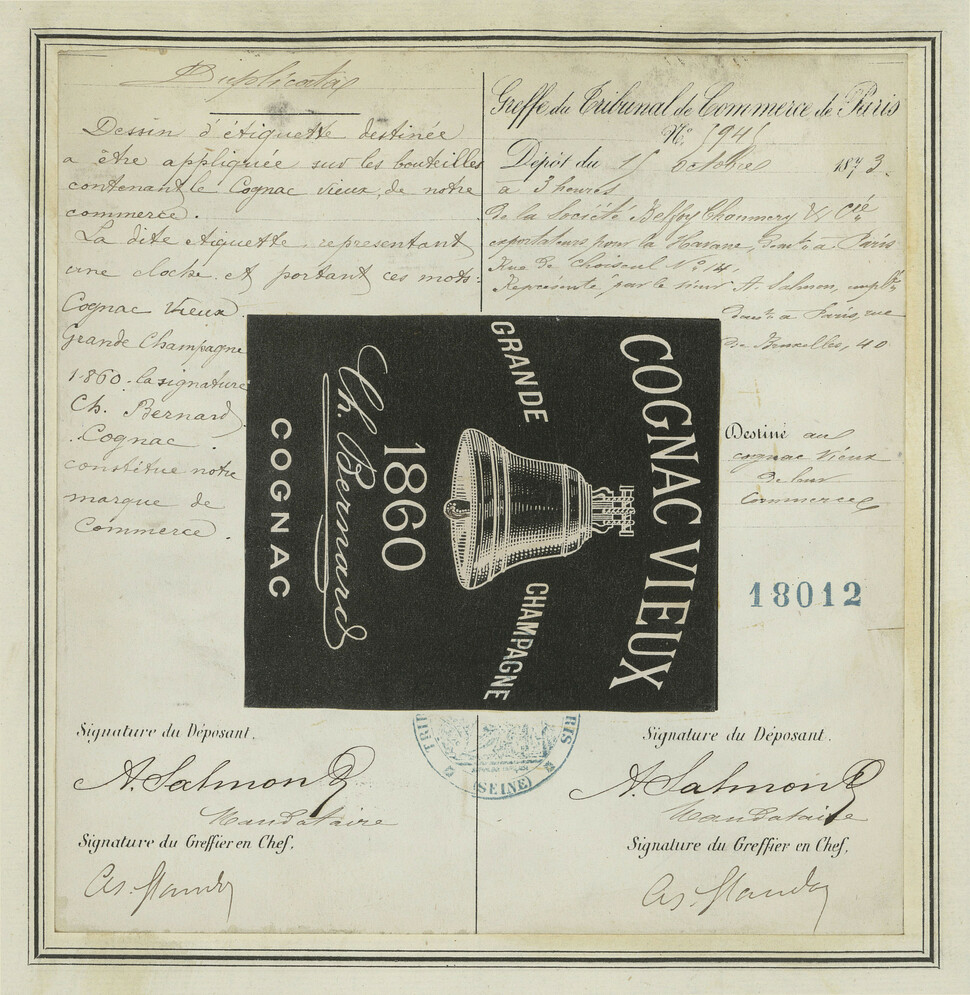 Duplicata
Dessin d'étiquette destinée
a être appliquée sur les bouteilles
contenant le Cognac vieux, de notre
commerce.
La dite etiquette representant
une cloche et portant ces mots:
Cognac Vieux
Grande Champagne
1860. la signature
Ch. Bernard
Cognac
constitue notre
marque de
Commerce.
Greffe du Tribunal de Commerce de Paris
N°
Dépôt du 15 octobre 1873.
à 3 heures
de la Société Belfoy Chaumery & Cie
exportateurs pour la Havane, dt à Paris
Rue de Choiseul N° 14,
Représentée par le sieur A. Salmon,
à Paris, rue
de Bruxelles, 40
Destiné au
cognac Vieux
de leur
Commerce
18012
COGNAC VIEUX
GRANDE CHAMPAGNE
1860
Ch. Bernard
COGNAC
(SEINE)
Signature du Déposant.
A. Salmon
Mandataire
Signature du Greffier en Chef.
Signature du Déposant.
A. Salmon
Mandataire
Signature du Greffier en Chef.